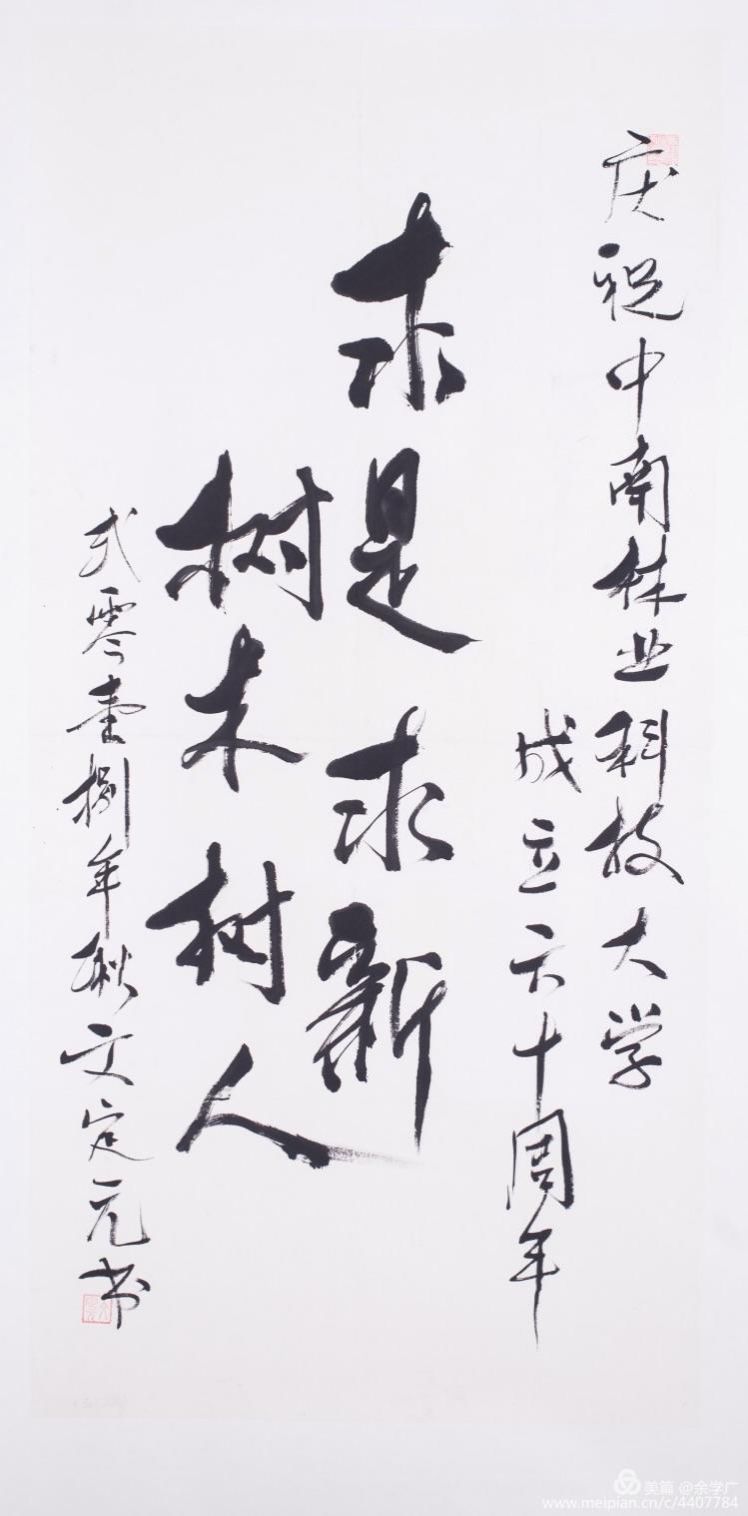 庆祝中南林业科技大学
成立六十周年
求是求新
树木树人
贰零壹捌年秋文定元书
美篇 @余学广
www.meipian.cn/c/4407784